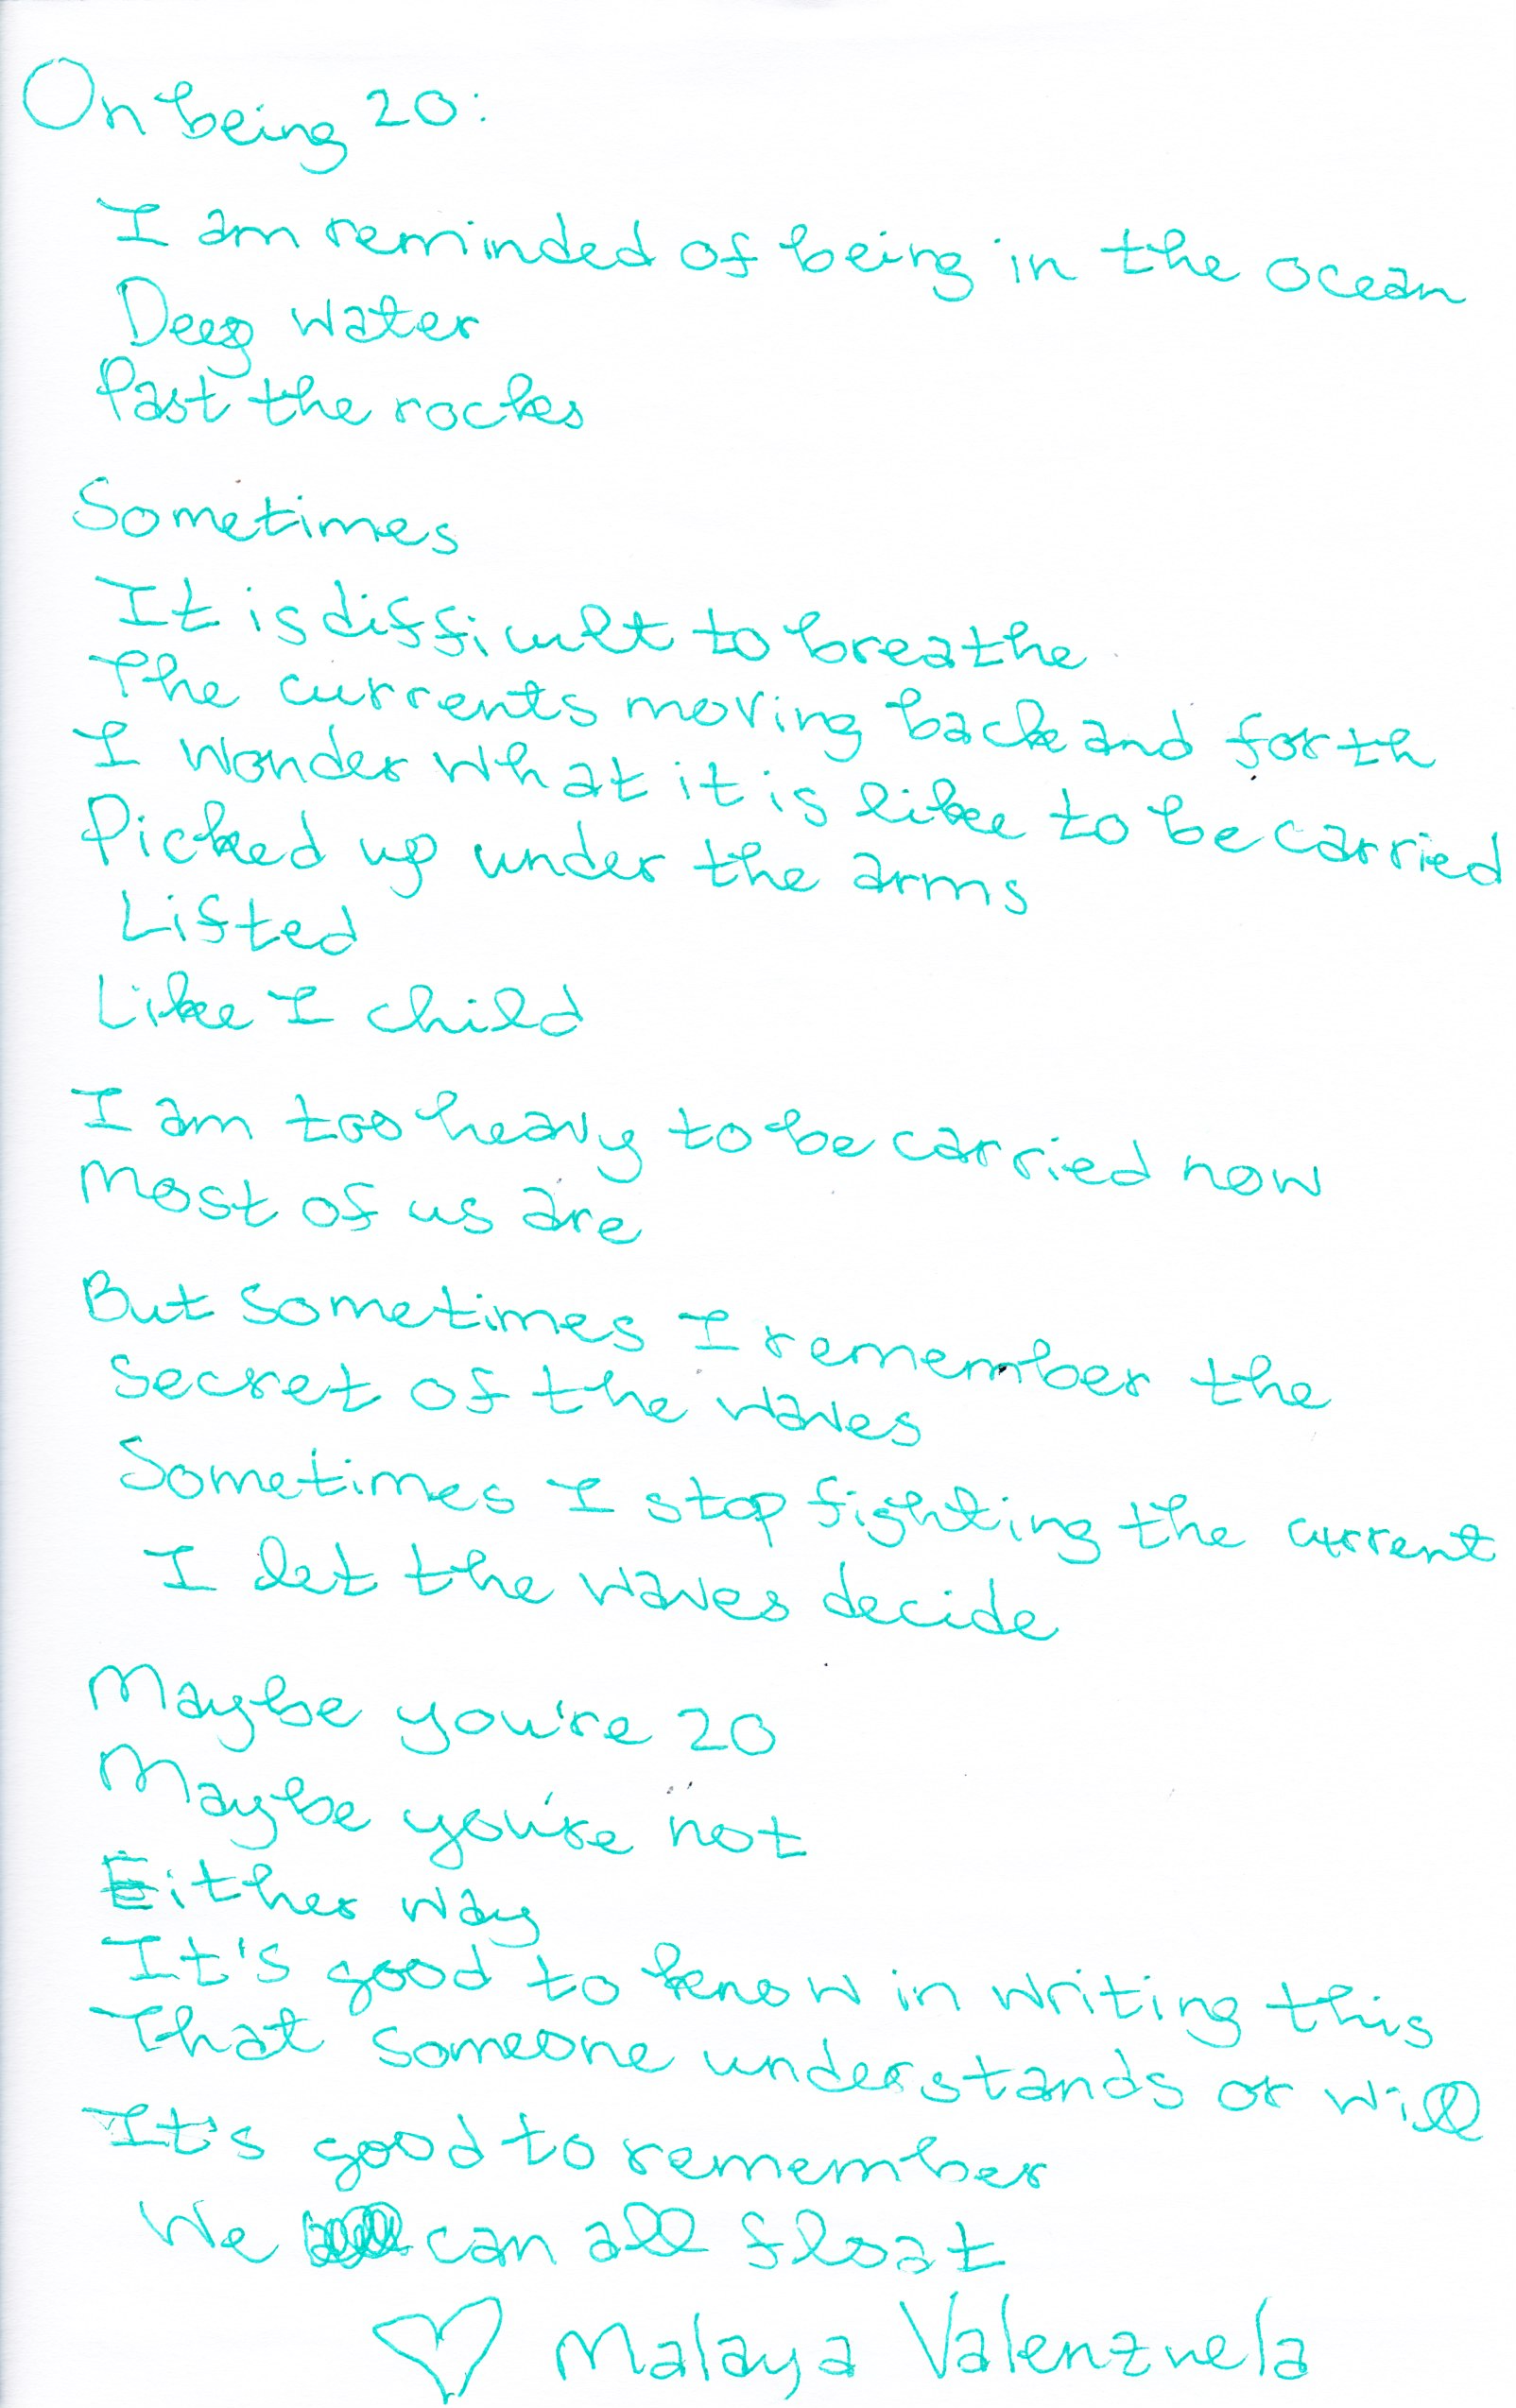 On being 20:
I am reminded of being in the ocean
Deep water
Past the rocks
Sometimes
It is difficult to breathe
The currents moving back and forth
I wonder what it is like to be carried
Picked up under the arms
Lifted
Like I child
I am too heavy to be carried now
Most of us are
But sometimes I remember the
secret of the waves
Sometimes I stop fighting the current
I let the waves decide
Maybe you're 20
Maybe you're not
Either way
It's good to know in writing this
That someone understands or will
It's good to remember
We can all float
Malaya Valenzuela